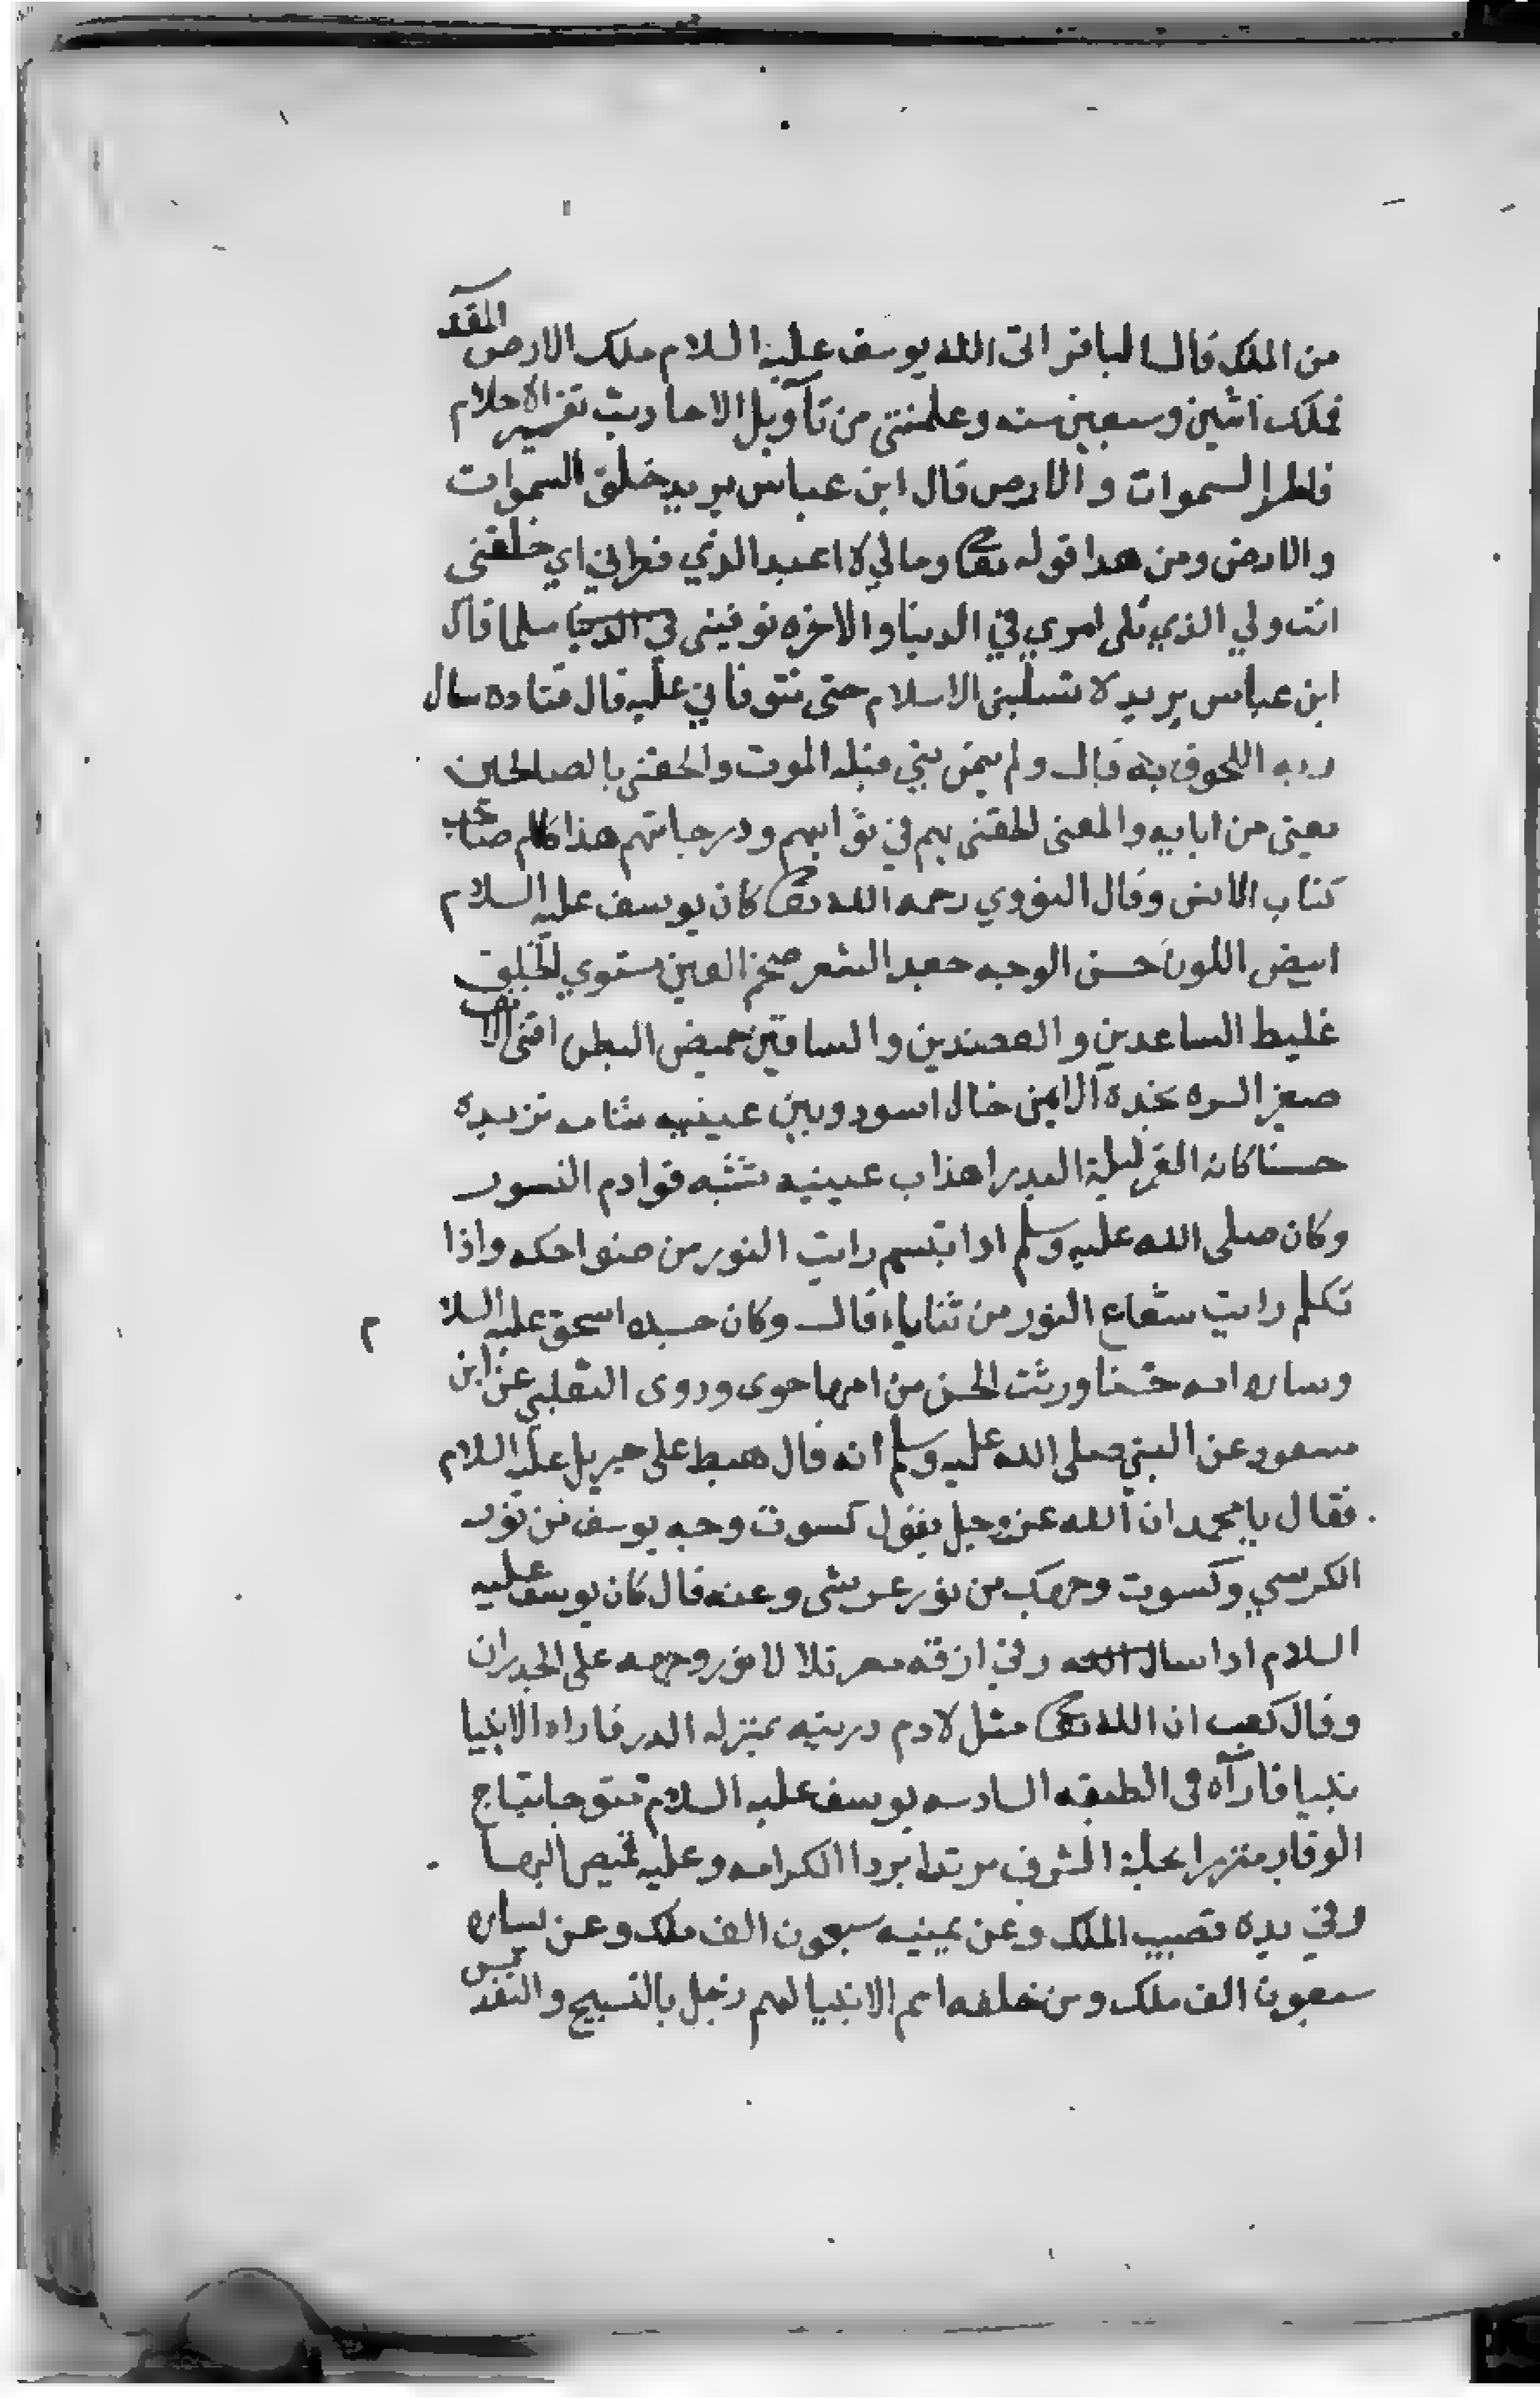 من الملك قال الباقر اتى الله يوسف عليه السلام ملك الارض المقد
فملك اثنين وسبعين سنه وعلمتنى من تآويل الاحاديث تفسير الاحلام
فاطر السموات والارض قال ابن عباس يريد خلق السموات
والارض ومن هدا قوله تعا ومالي لا اعبد الذي فطرني اي خلقني
انت ولي الذي تلى امري في الدنيا والاخره توفيني في الدنيا مسلما قال
ابن عباس يريد لا تسلبني الاسلام حتى تتوفاني عليه قال قتاده سال
ربه اللحوق به قال ولم يتمن نبي قبله الموت والحقني بالصالحين
يعني من ابايه والمعنى الحقني بهم في ثوابهم ودرجاتهم هذا كلام صاحب
كتاب الانس وقال النووي رحمه الله تعا كان يوسف عليه السلام
ابيض اللون حسن الوجه جعد الشعر ضخم العين مستوي الخلق
غليظ الساعدين والعضدين والساقين خميص البطن اقنى الانف
صغير السره بخده الايمن خال اسود وبين عينيه شامه تزيده
حسنا كانه القمر ليلة البدر اهذاب عينيه تشبه قوادم النسور
وكان صلى الله عليه وسلم ادا تبسم رايت النور من ضواحكه واذا
تكلم رايت شعاع النور من ثناياه قال وكان جده اسحق عليه السلام
وساره امه حسنا ورثت الحسن من امها حوى وروى الثعلبي عن ابن
مسعود عن النبي صلى الله عليه وسلم انه قال هبط على جبريل عليه السلام
فقال يا محمد ان الله عز وجل يقول كسوت وجه يوسف من نور
الكرسي وكسوت وجهك من نور عرشى وعنه قال كان يوسف عليه
السلام ادا سال الله في ازقه مصر تلالا نور وجهه على الجدران
وقال كعب ان الله تعا مثل لادم دريته بمنزله الدر فاراه الانبيا
نبيا فاراه فى الطبقه السادسه يوسف عليه السلام متوجا بتاج
الوقار متزرا بحلة الشرف مرتدا بردا الكرامه وعليه قميص البها
وفي يده قضيب الملك وعن يمينه سبعون الف ملك وعن يساره
سبعون الف ملك ومن خلفه امم الانبيا لهم زجل بالتسبيح والتقديس